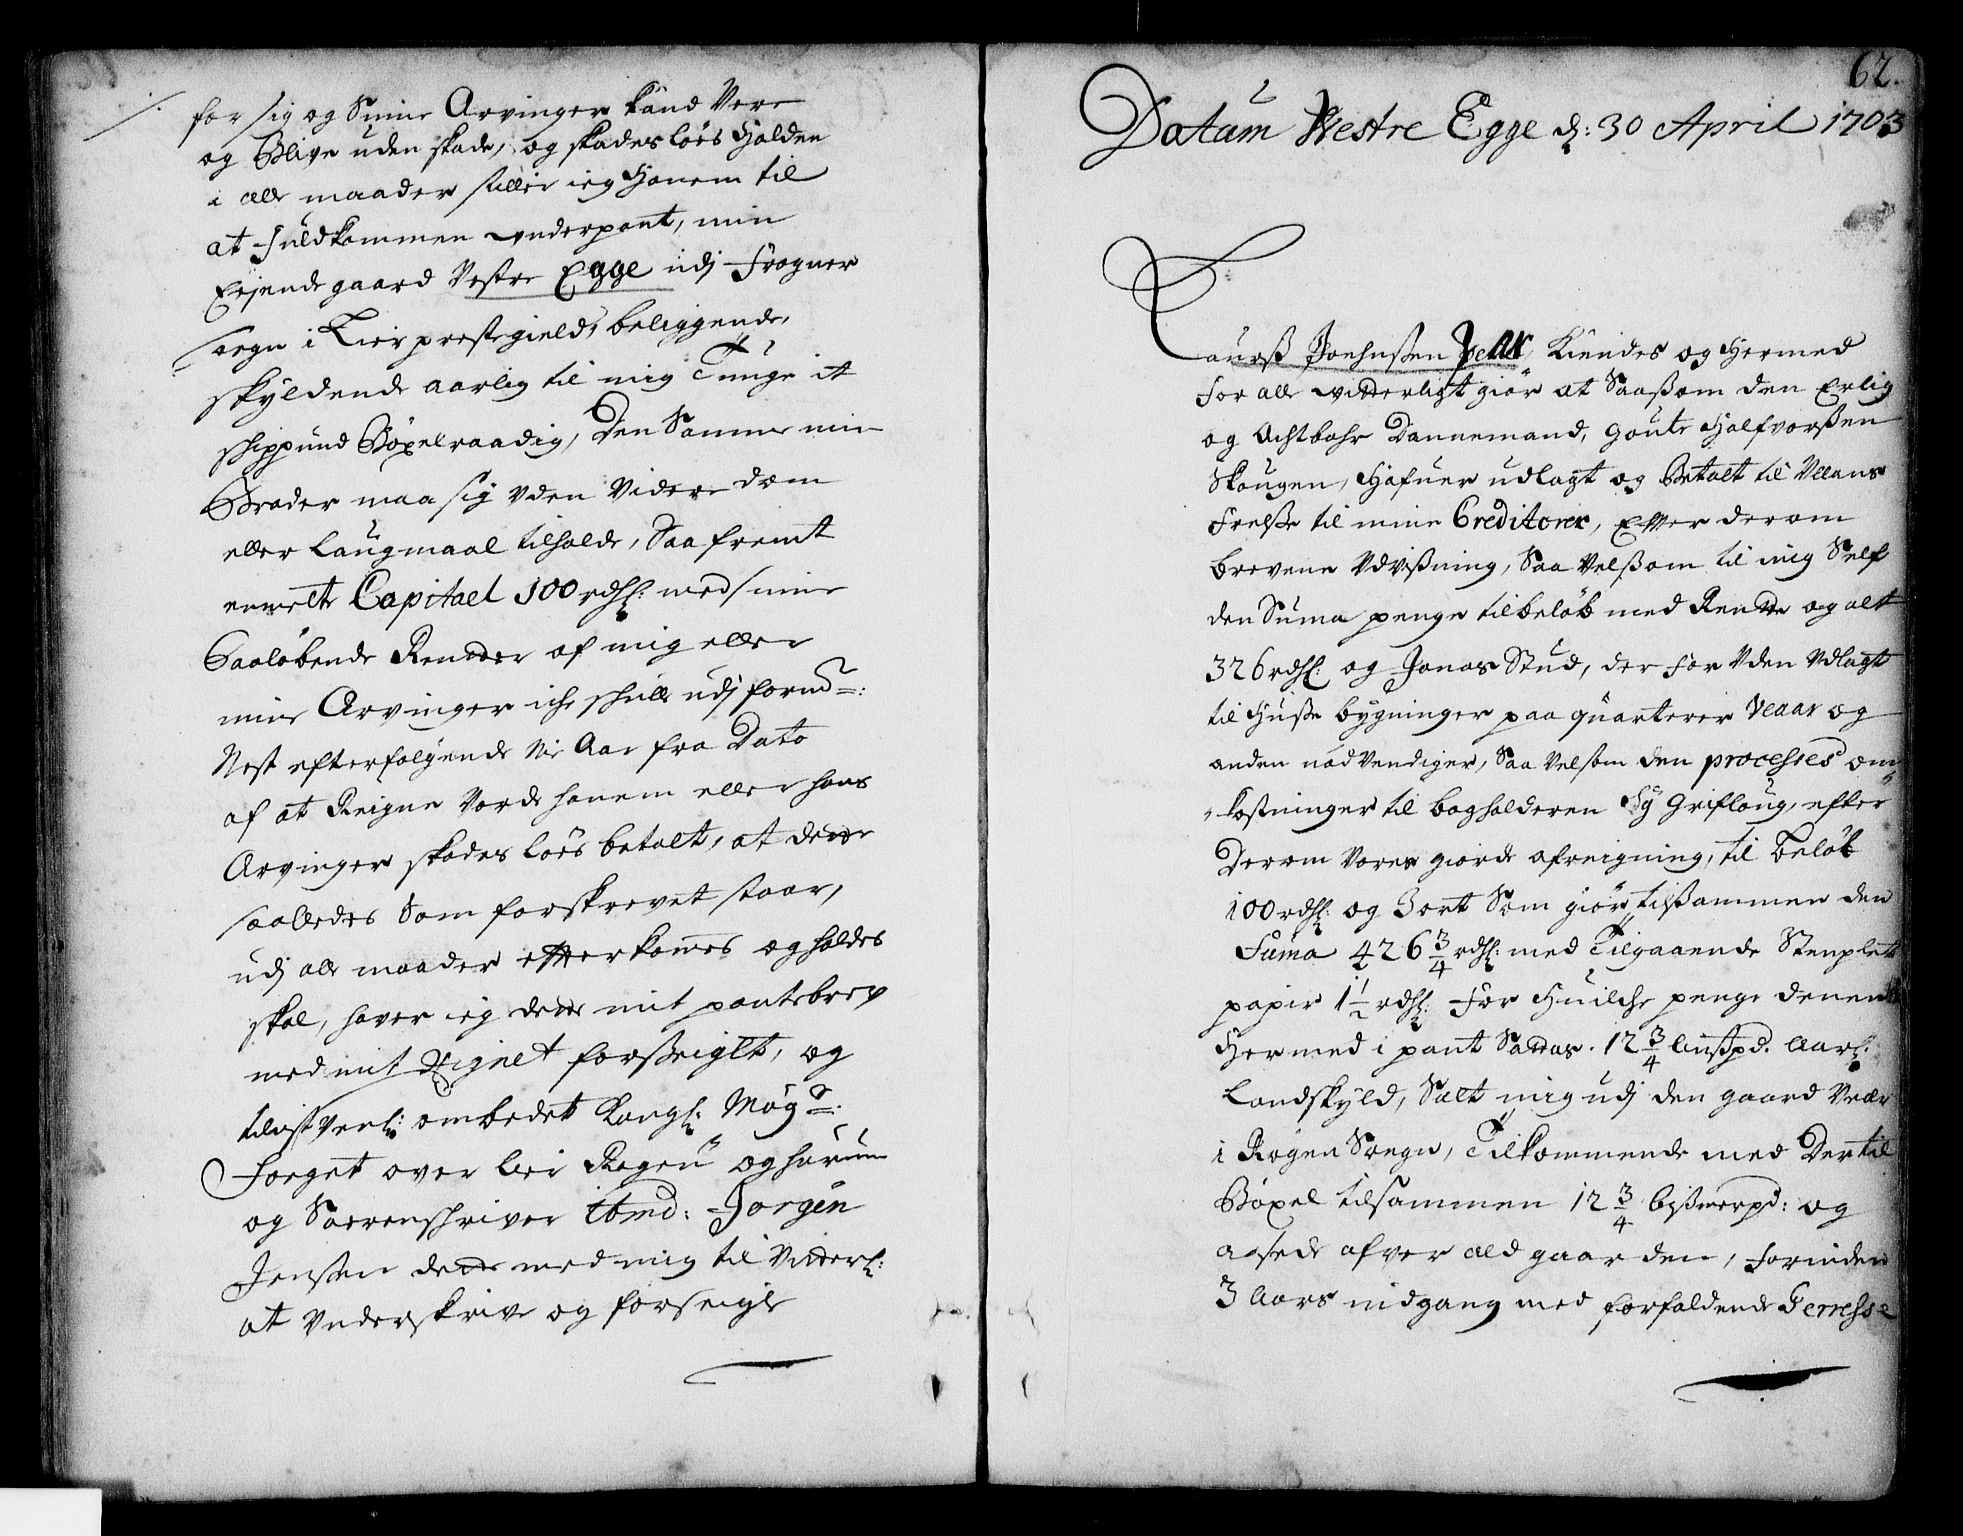 for sig og Sinne Arvinger kand Vere
og Blive uden skade, og skadesløes Holden
i alle maader stiller ieg Hanem til
at Fuldkommen underpant, min
Eiende gaard Vestre Egge udj Frogner
sogn i Lier prestegield, beliggende,
skyldende aarlig til mig Tunge it
schippund Bøxelraadig, den Samme min
Broder maa sig uden Videre dom
eller Laugmaal tilholde, Saa fremt
Capital 100 rdhl: med sine
Paaløbende Rentter af mig eller
mine Arvinger iche schulle udj
Nest efterfølgende Aar fra Dato
af at Reigne Vorde hanem eller hans
Arvinger skadesløes betalt, at dette
saaledes Som forskrevet staar,
udj alle maader efterkomes og holdes
skal, haver ieg dette mit pantebrev
med mit Signet forseiglt, og
tienstvenl: ombedet Kongl: May
Foeget over Lier Røgen og Hurum
og Soerenschriver Jørgen
Jensen dette med mig til Vitterl:
at Underskrive og forseigle
62.
Datum Westre Egge d: 30 April 1703
Laurss Joenssen Kiendes og Hermed
for alle vitterligt giør at Saassom den Erlig
og Achtbahr Dannemand, Goute Halfvorssen
Skougen, Hafuer udlagt og Betalt til
Frelsse til mine Creditorer, Efter derom
brevene Udvissning, Saa Velssom til mig Self
den Suma penge tilbeløb med Rentte og alt
326 rdhl: og Jonas Stud, der for Uden Udlagt
til Husse bygninger paa quarterer Veaar og
anden nødvendiger, Saa Velsom den processes om
kostninger til bogholderen Grifloug, efter
Derom Vores giorde afreigning, til Beløb
100 rdhl: og 3 ort Som giør tilssammen den
Suma 426 3/4 rdhl: med Tilgaaende Stenplett
papir 1 1/2 rdhl: For Huilche penge
Hermed i pant Sættes. 12 3/4 Lisspd. Aarl:
Landskyld, Sælt mig udj den gaard Veær
i Røgen Sogn, Tilkommende med Dertil
Bøxel tilsammen 12 3/4 bissmerpd: og
asede afver ald gaarden, forinden
3 Aars nidgang med forfaldende